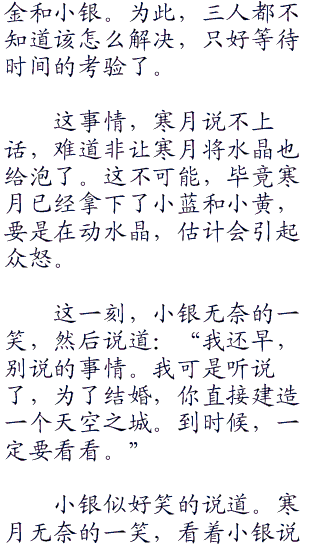 金和小银。为此，三人都不
知道该怎么解决，只好等待
时间的考验了。
这事情，寒月说不上
话，难道非让寒月将水晶也
给泡了。这不可能，毕竟寒
月已经拿下了小蓝和小黄，
要是在动水晶，估计会引起
众怒。
这一刻，小银无奈的一
笑，然后说道：“我还早，
别说的事情。我可是听说
了，为了结婚，你直接建造
一个天空之城。到时候，一
定要看看。”
小银似好笑的说道。寒
月无奈的一笑，看着小银说